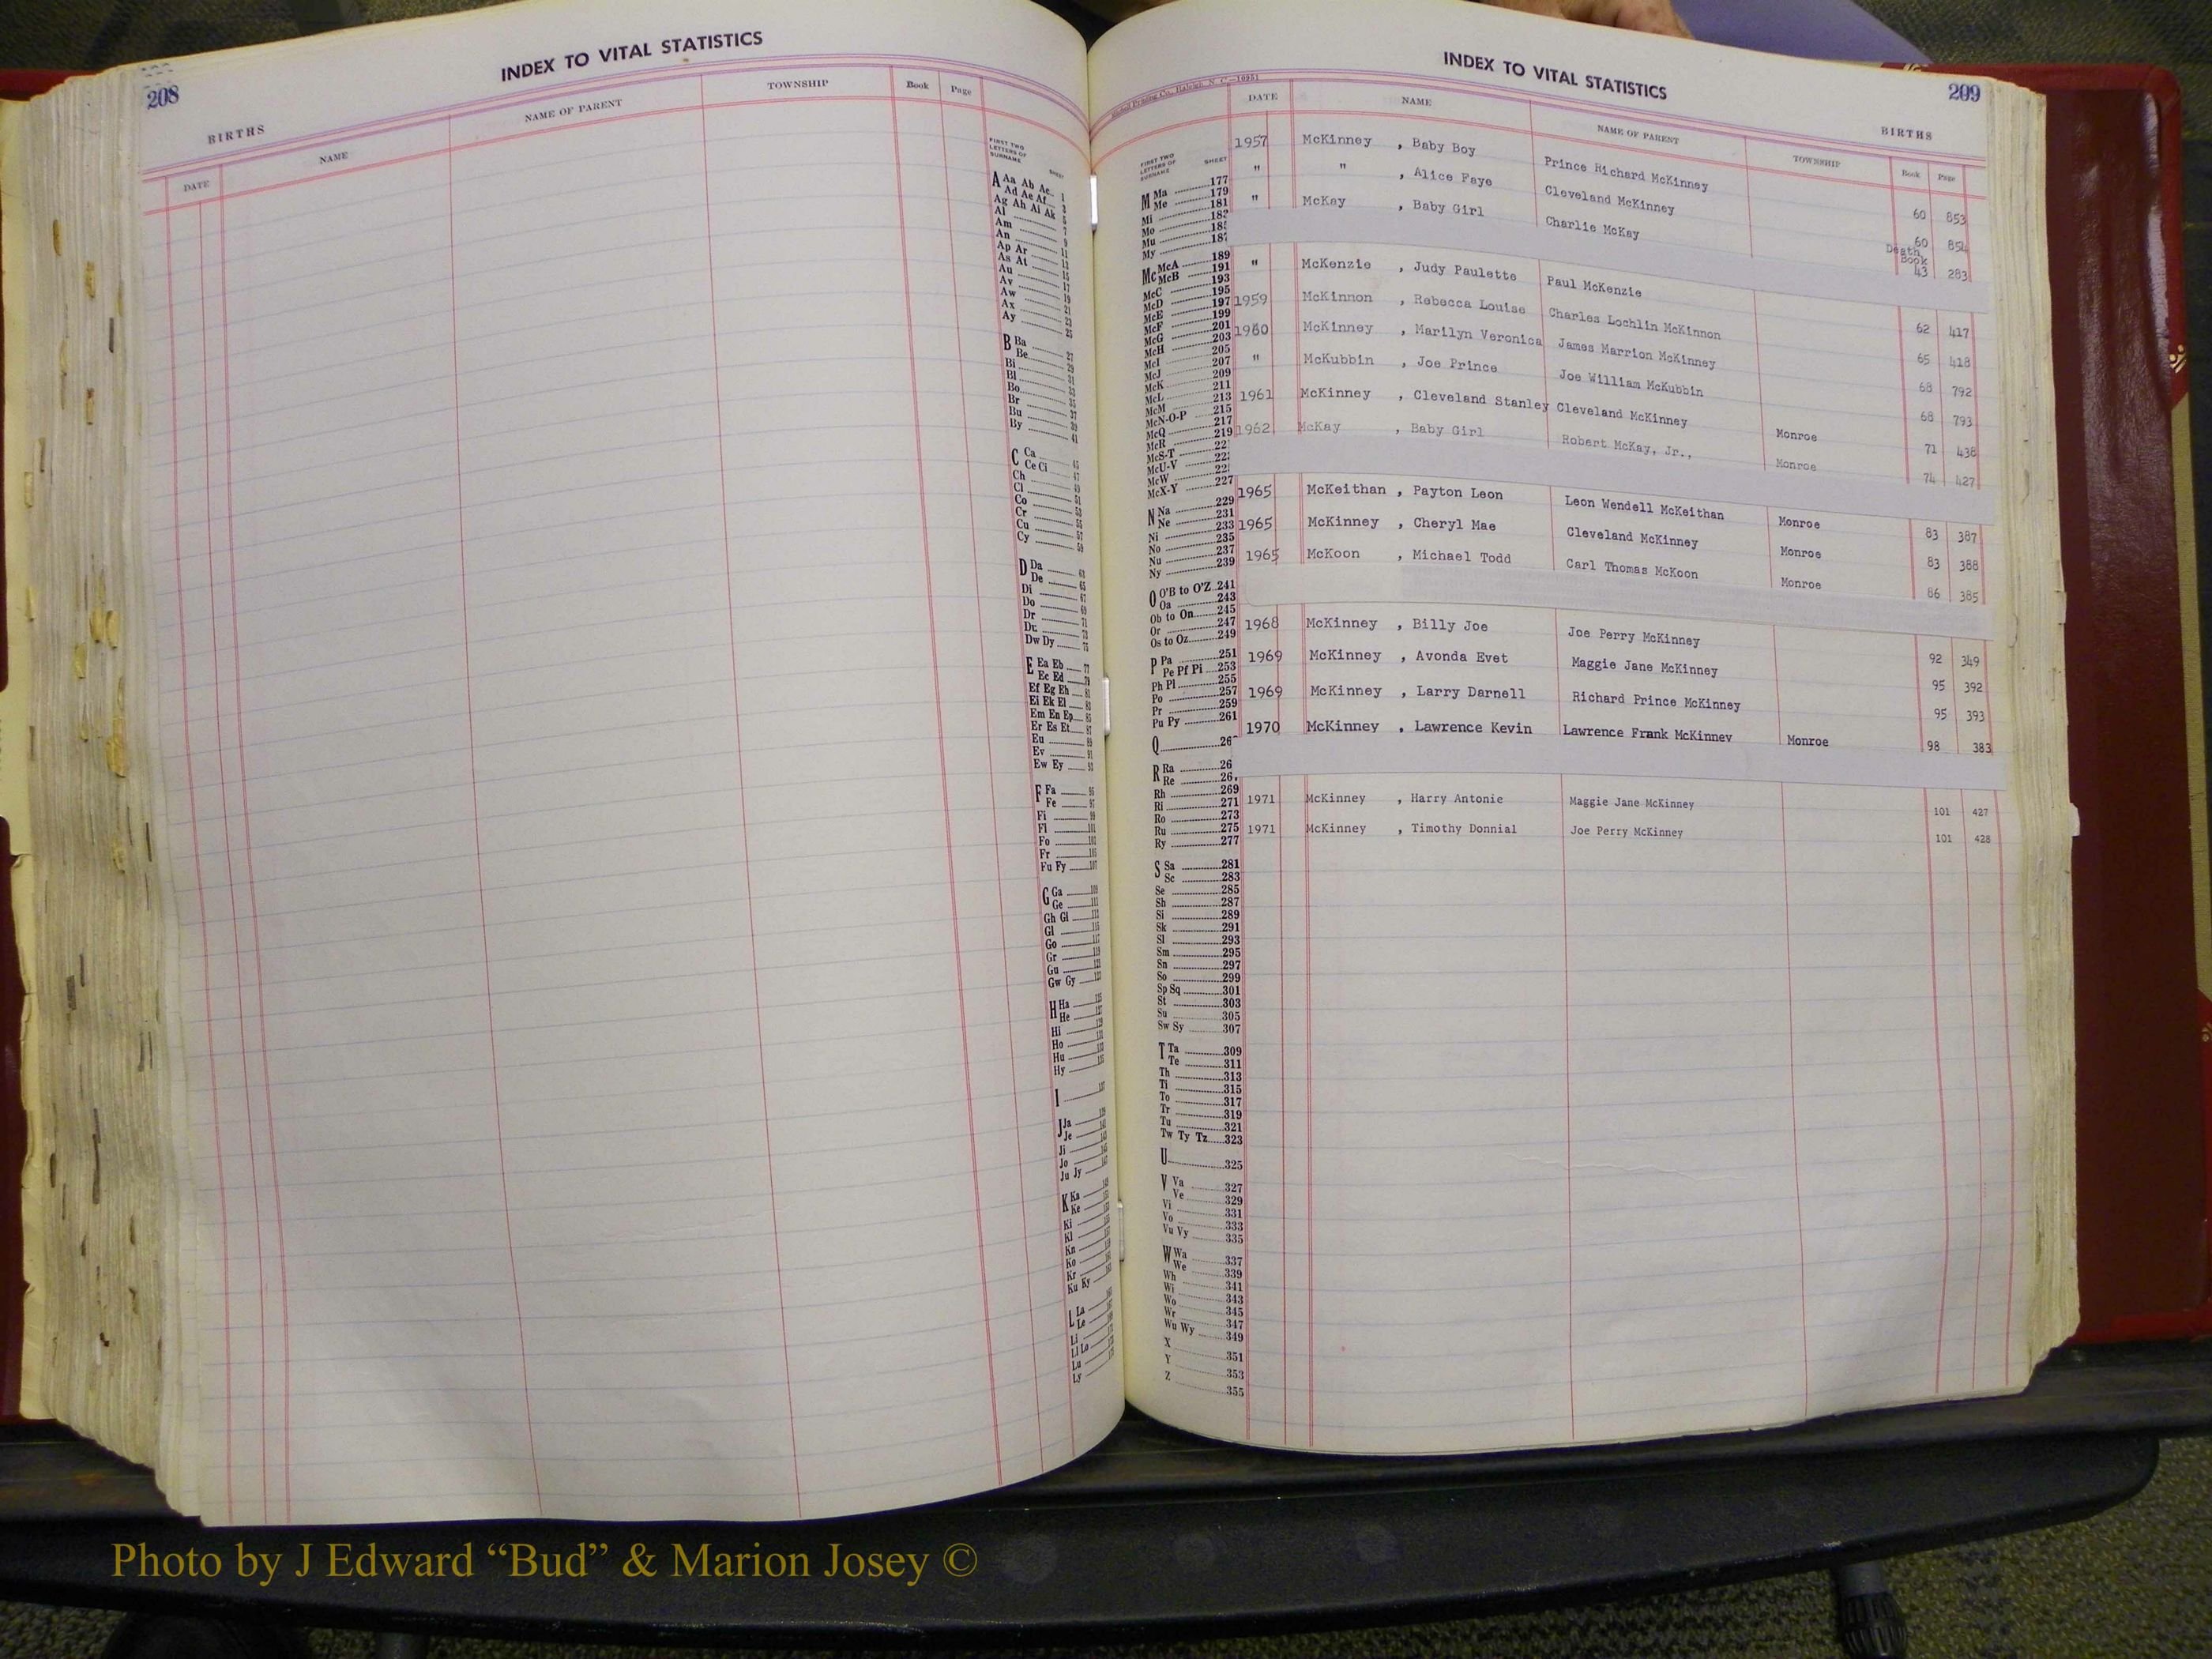 208
INDEX TO VITAL STATISTICS
BIRTHS
DATE NAME NAME OF PARENT TOWNSHIP Book Page
FIRST TWO LETTERS OF SURNAME SHEET
A Aa Ab Ac
Ad Ae Af
Ag Ah Ai Ak
Al
Am
An
Ap Ar
As At
Au
Av
Aw
Ax
Ay
B Ba
Be
Bi
Bl
Bo
Br
Bu
By
C Ca
Ce Ci
Ch
Cl
Co
Cr
Cu
Cy
D Da
De
Di
Do
Dr
Du
Dw Dy
E Ea Eb
Ec Ed
Ef Eg Eh
Ei Ek El
Em En Ep
Er Es Et
Eu
Ev
Ew Ey
F Fa
Fe
Fi
Fl
Fo
Fr
Fu Fy
G Ga
Ge
Gh Gi
Gl
Go
Gr
Gu
Gw Gy
H Ha
He
Hi
Ho
Hu
Hy
I
J Ja
Je
Ji
Jo
Ju Jy
K Ka
Ke
Ki
Kl
Kn
Ko
Kr
Ku Ky
L La
Le
Li
Ll Lo
Lu
Ly
INDEX TO VITAL STATISTICS
209
BIRTHS
DATE NAME NAME OF PARENT TOWNSHIP Book Page
1957 McKinney , Baby Boy Prince Richard McKinney 60 853
" " , Alice Faye Cleveland McKinney 60 854
" McKay , Baby Girl Charlie McKay Death Book 43 283
" McKenzie , Judy Paulette Paul McKenzie 62 417
1959 McKinnon , Rebecca Louise Charles Lochlin McKinnon 65 418
1960 McKinney , Marilyn Veronica James Marrion McKinney 68 792
" McKubbin , Joe Prince Joe William McKubbin 68 793
1961 McKinney , Cleveland Stanley Cleveland McKinney Monroe 71 438
1962 McKay , Baby Girl Robert McKay, Jr., Monroe 74 427
1965 McKeithan , Payton Leon Leon Wendell McKeithan Monroe 83 387
1965 McKinney , Cheryl Mae Cleveland McKinney Monroe 83 388
1965 McKoon , Michael Todd Carl Thomas McKoon Monroe 86 385
1968 McKinney , Billy Joe Joe Perry McKinney 92 349
1969 McKinney , Avonda Evet Maggie Jane McKinney 95 392
1969 McKinney , Larry Darnell Richard Prince McKinney 95 393
1970 McKinney , Lawrence Kevin Lawrence Frank McKinney Monroe 98 383
1971 McKinney , Harry Antonie Maggie Jane McKinney 101 427
1971 McKinney , Timothy Donnial Joe Perry McKinney 101 428
FIRST TWO LETTERS OF SURNAME SHEET
M Ma 177
Me 179
Mi 181
Mo
Mu
My
Mc McA 189
McB 191
McC 193
McD 195
McE 197
McF 199
McG 201
McH 203
McI 205
McJ 207
McK 209
McL 211
McM 213
McN-O-P 215
McQ 217
McR 219
McS-T
McU-V
McW
McX-Y 227
N Na 229
Ne 231
Ni 233
No 235
Nu 237
Ny 239
O O'B to O'Z 241
Oa 243
Ob to On 245
Or 247
Os to Oz 249
P Pa 251
Pe Pf Pi 253
Ph Pl 255
Po 257
Pr 259
Pu Py 261
Q
R Ra
Re
Rh 269
Ri 271
Ro 273
Ru 275
Ry 277
S Sa 281
Sc 283
Se 285
Sh 287
Si 289
Sk 291
Sl 293
Sm 295
Sn 297
So 299
Sp Sq 301
St 303
Su 305
Sw Sy 307
T Ta 309
Te 311
Th 313
Ti 315
To 317
Tr 319
Tu 321
Tw Ty Tz 323
U 325
V Va 327
Ve 329
Vi 331
Vo 333
Vu Vy 335
W Wa 337
We 339
Wh 341
Wi 343
Wo 345
Wr 347
Wu Wy 349
X 351
Y 353
Z 355
Photo by J Edward “Bud” & Marion Josey ©